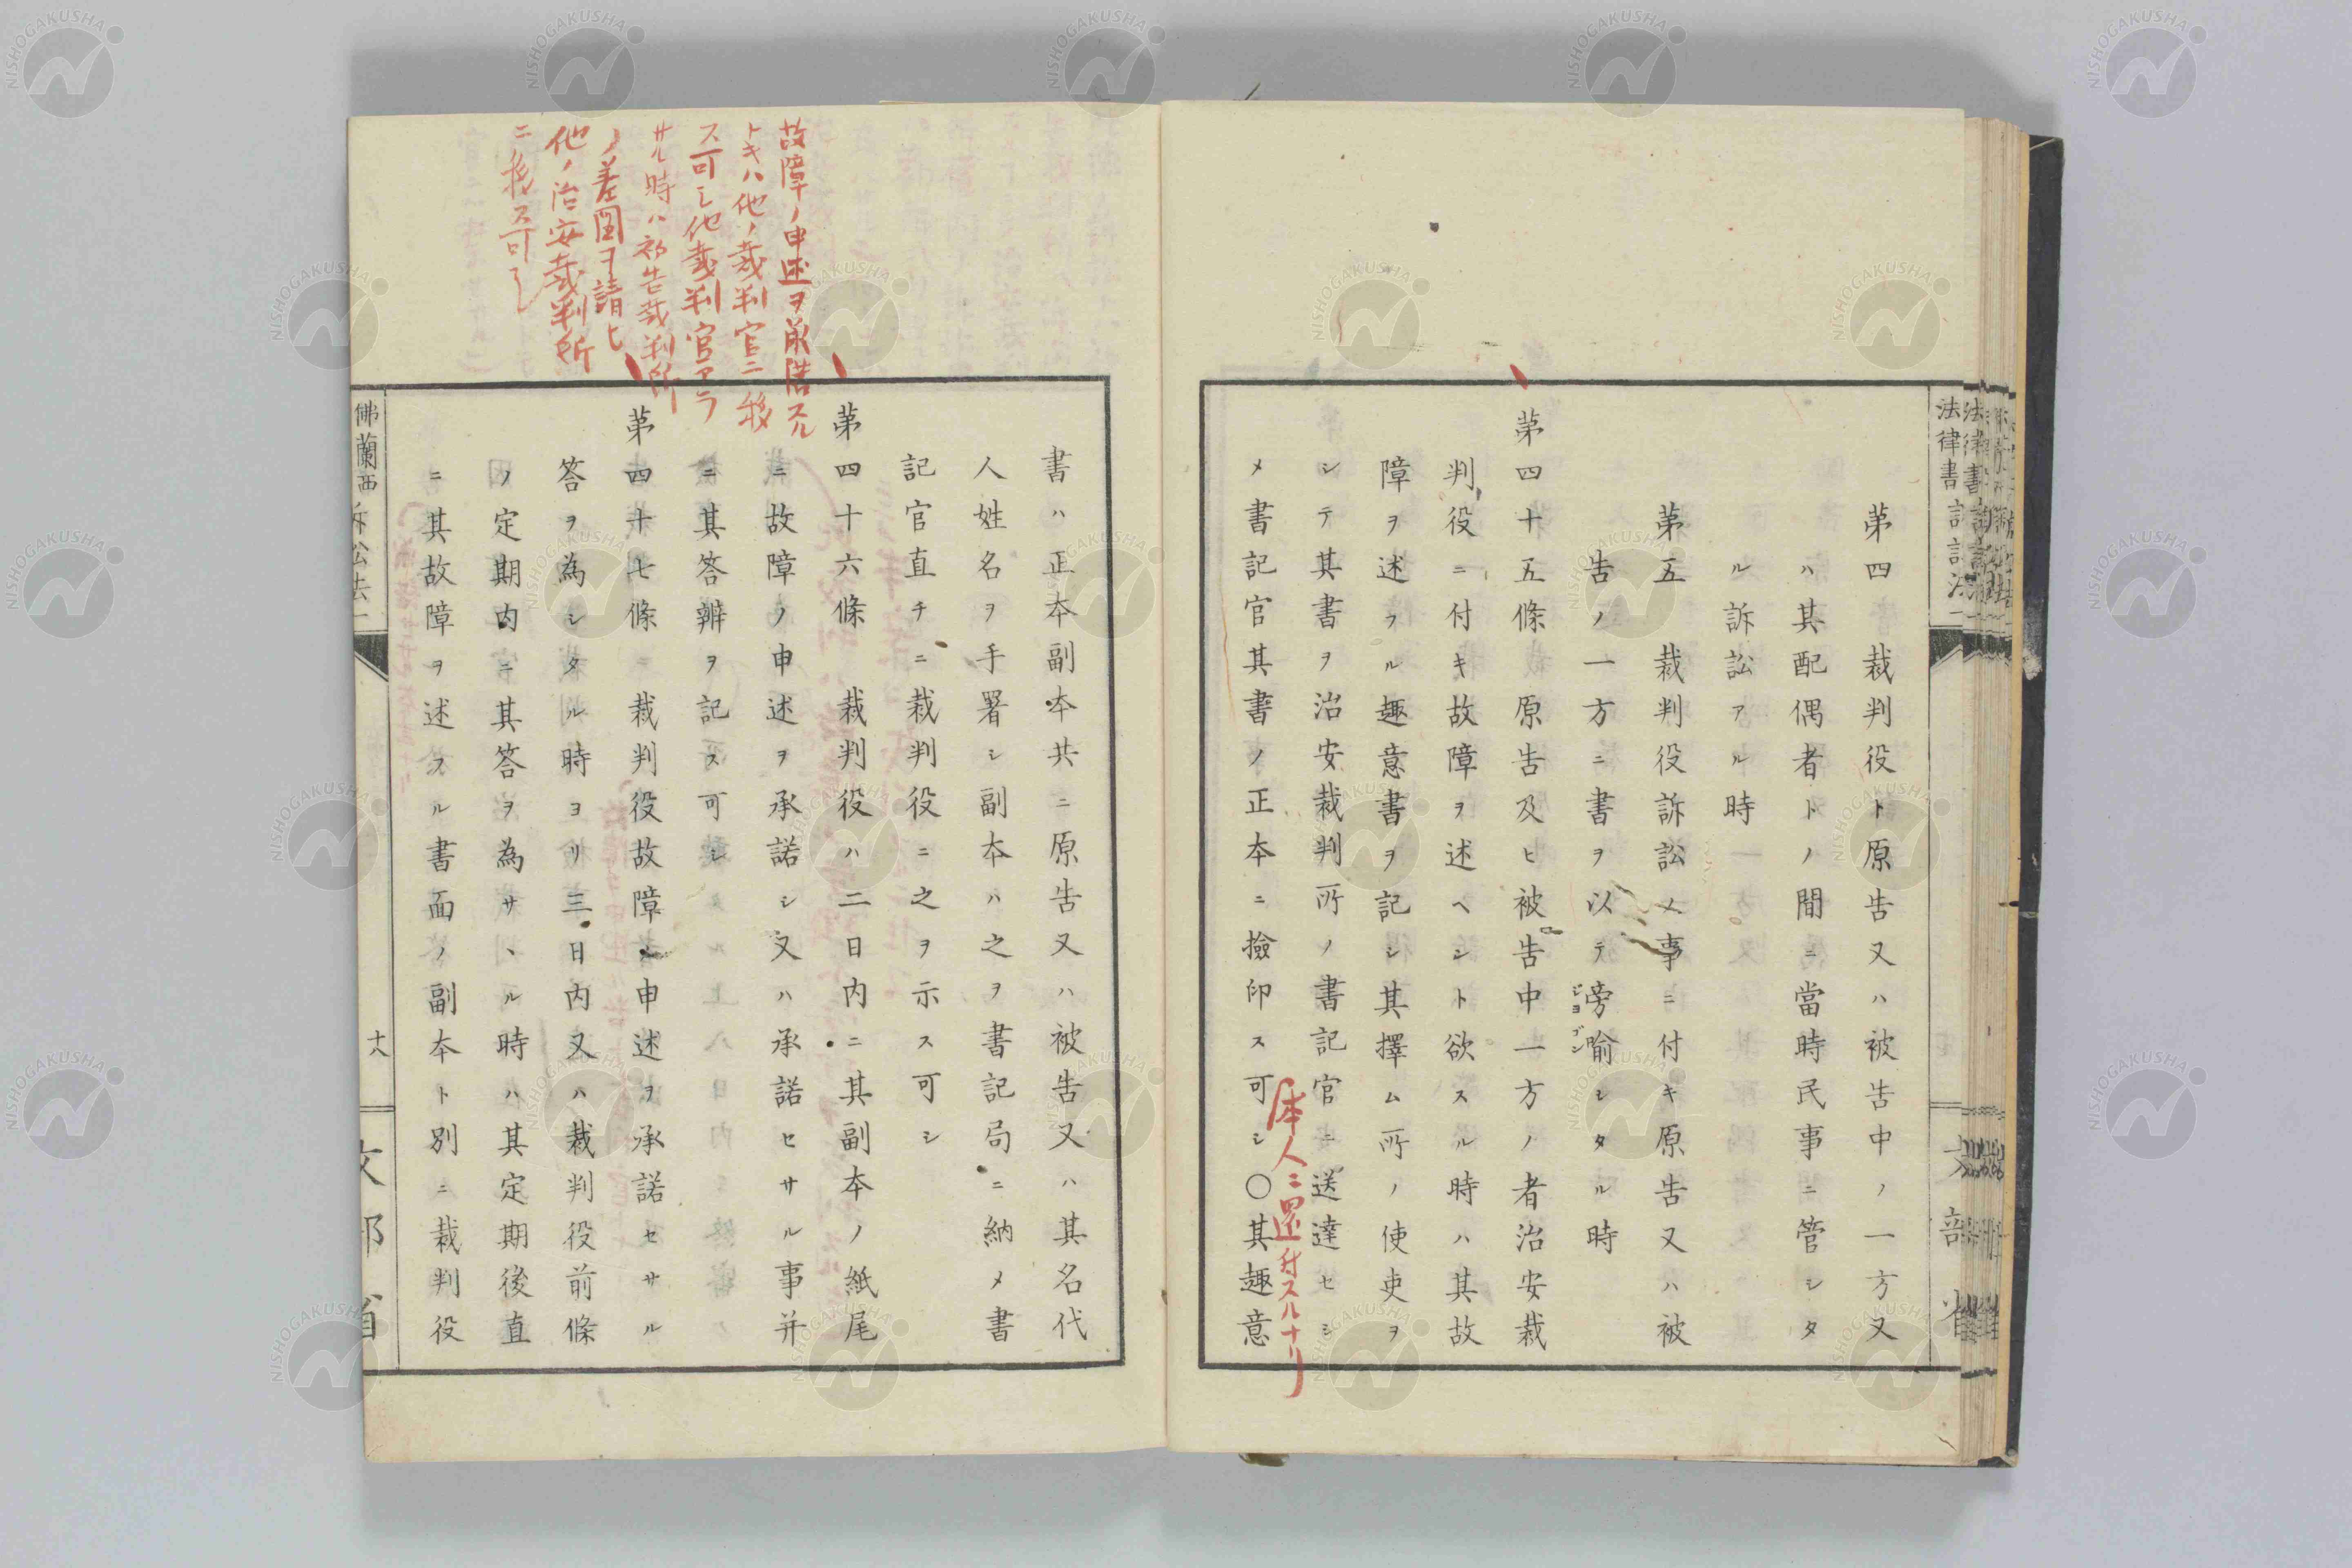 第四 裁判役ト原告又ハ被告中ノ一方又
ハ其配偶者トノ間ニ當時民事ニ管シタ
ル訴訟アル時
第五 裁判役訴訟ノ事ニ付キ原告又ハ被
告ノ一方ニ書ヲ以テ旁喻シタル時
ジヨゴン
第四十五條 原告及ヒ被告中一方ノ者治安裁
判役ニ付キ故障ヲ述ヘシト欲スル時ハ其故
障ヲ述フル趣意書ヲ記シ其擇ム所ノ使吏ヲ
シテ其書ヲ治安裁判所ノ書記官ニ送達セシ
メ書記官其書ノ正本ニ撿印ス可シ〇其趣意
本人ニ還付スルナリ
書ハ正本副本共ニ原告又ハ被告又ハ其名代
人姓名ヲ手署シ副本ハ之ヲ書記局ニ納メ書
記官直チニ裁判役ニ之ヲ示ス可シ
第四十六條 裁判役ハ二日内ニ其副本ノ紙尾
ニ故障ノ申述ヲ承諾シ又ハ承諾セサル事并
ニ其答辨ヲ記ス可シ
第四十七條 裁判役故障ノ申述ヲ承諾セサル
答ヲ為シタル時ヨリ三日内又ハ裁判役前條
ノ定期内ニ其答ヲ為サヽル時ハ其定期後直
ニ其故障ヲ述フル書面ノ副本ト別ニ裁判役
故障ノ申述ヲ承諾スル
トキハ他ノ裁判官ニ移
ス可シ他裁判官アラ
サル時ハ初告裁判所
ノ差圖ヲ請ヒ
他ノ治安裁判所
ニ移ス可シ
佛蘭西訴訟法一
十八
文部省
法律書 訴訟法一
文部省
NISHOGAKUSHA